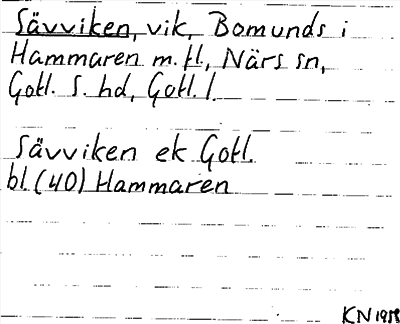 Sävviken, vik, Bomunds i
Hammaren m.fl., Närs sn,
Gotl. S. hd, Gotl. l.
Sävviken ek Gotl.
bl. (40) Hammaren
KN 1958